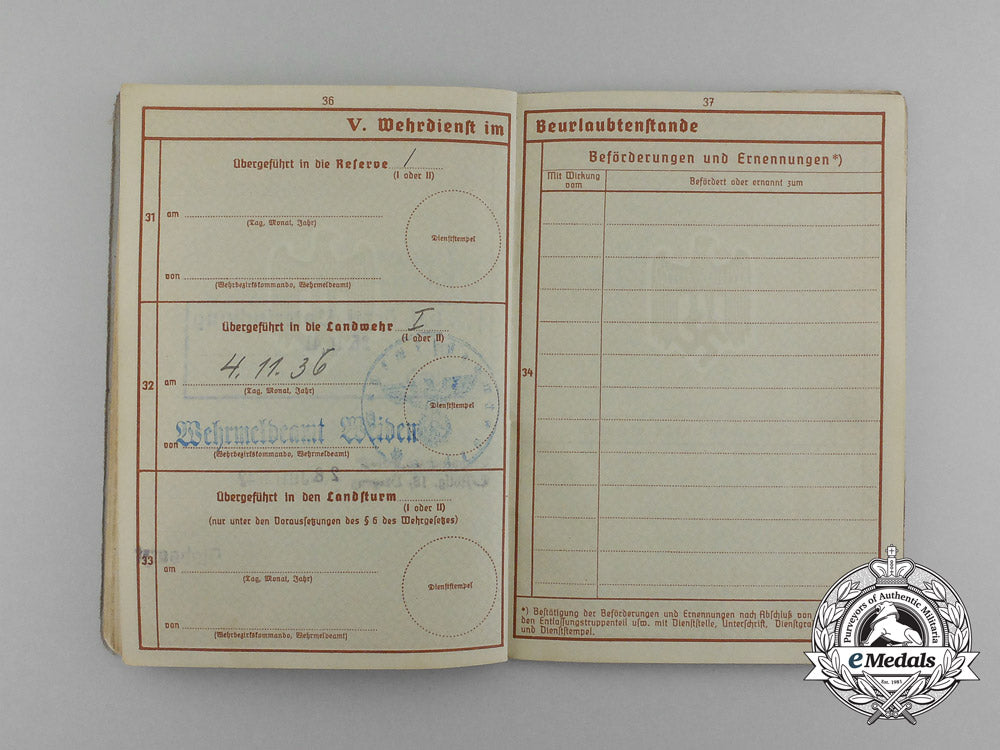 36
V. Wehrdienst im
Übergeführt in die Reserve I
(I oder II)
31
am
(Tag, Monat, Jahr)
Dienststempel
von
(Wehrbezirkskommando, Wehrmeldeamt)
Übergeführt in die Landwehr I
(I oder II)
32
am 4. 11. 36
(Tag, Monat, Jahr)
Dienststempel
von Wehrmeldeamt Weiden
(Wehrbezirkskommando, Wehrmeldeamt)
Übergeführt in den Landsturm
(I oder II)
(nur unter den Voraussetzungen des § 6 des Wehrgesetzes)
33
am
(Tag, Monat, Jahr)
Dienststempel
von
(Wehrbezirkskommando, Wehrmeldeamt)
37
Beurlaubtenstande
Beförderungen und Ernennungen*)
Mit Wirkung vom
Befördert oder ernannt zum
34
*) Bestätigung der Beförderungen und Ernennungen nach Abschluß von
den Entlassungstruppenteil usw. mit Dienststelle, Unterschrift, Dienstgra
und Dienststempel.
Purveyors of Authentic Militaria
eMedals
Est. 1981